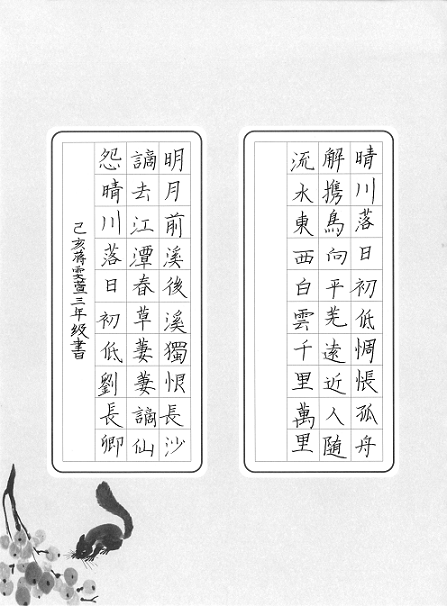 晴川落日初低惆悵孤舟
解携鳥向平芜遠近人随
流水東西白雲千里萬里
明月前溪後溪獨恨長沙
謫去江潭春草萋萋謫仙
怨晴川落日初低劉長卿
己亥蒋雯萱三年级書